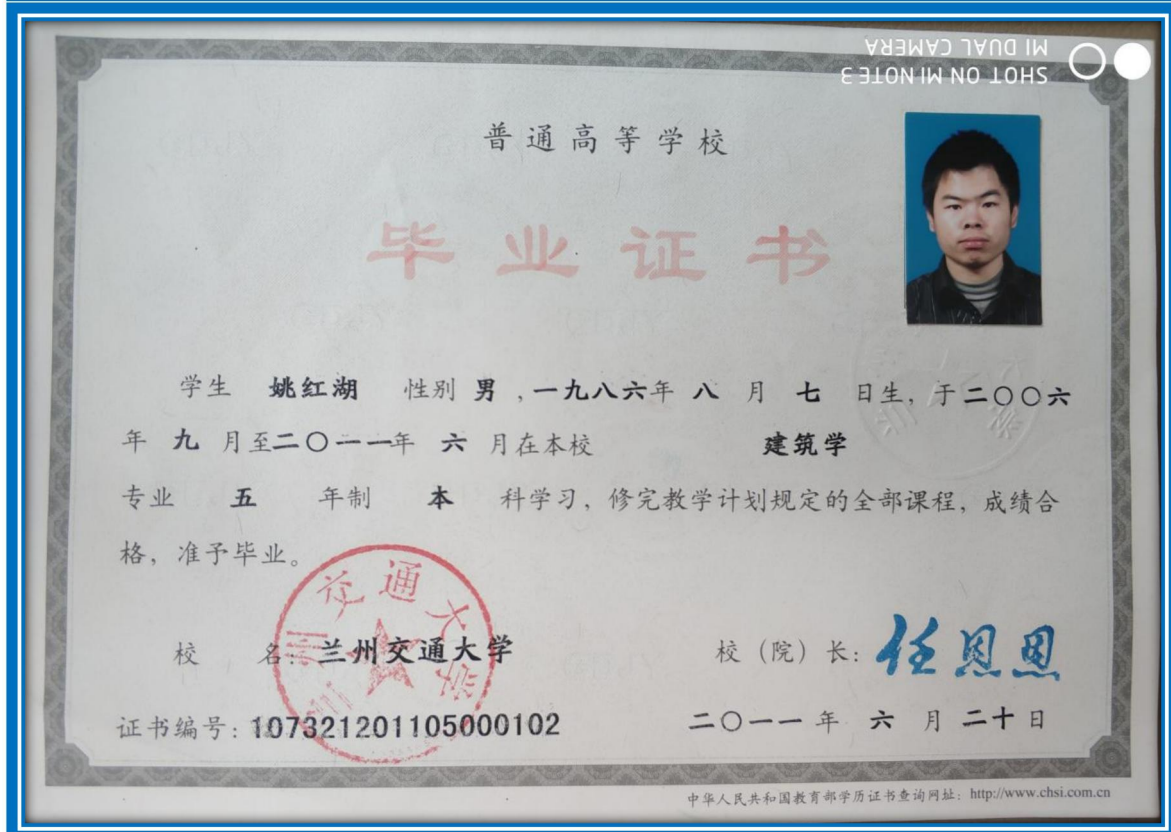 SHOT ON MI NOTE 3
MI DUAL CAMERA
普通高等学校
毕业证书
学生 姚红湖 性别 男 ,一九八六年 八 月 七 日生, 于二〇〇六
年 九 月至二〇一一年 六 月在本校 建筑学
专业 五 年制 本 科学习, 修完教学计划规定的全部课程, 成绩合
格, 准予毕业。
校 名: 兰州交通大学
校（院）长: 任恩恩
兰州交通大学
证书编号: 107321201105000102
二〇一一 年 六 月 二十 日
中华人民共和国教育部学历证书查询网址: http://www.chsi.com.cn